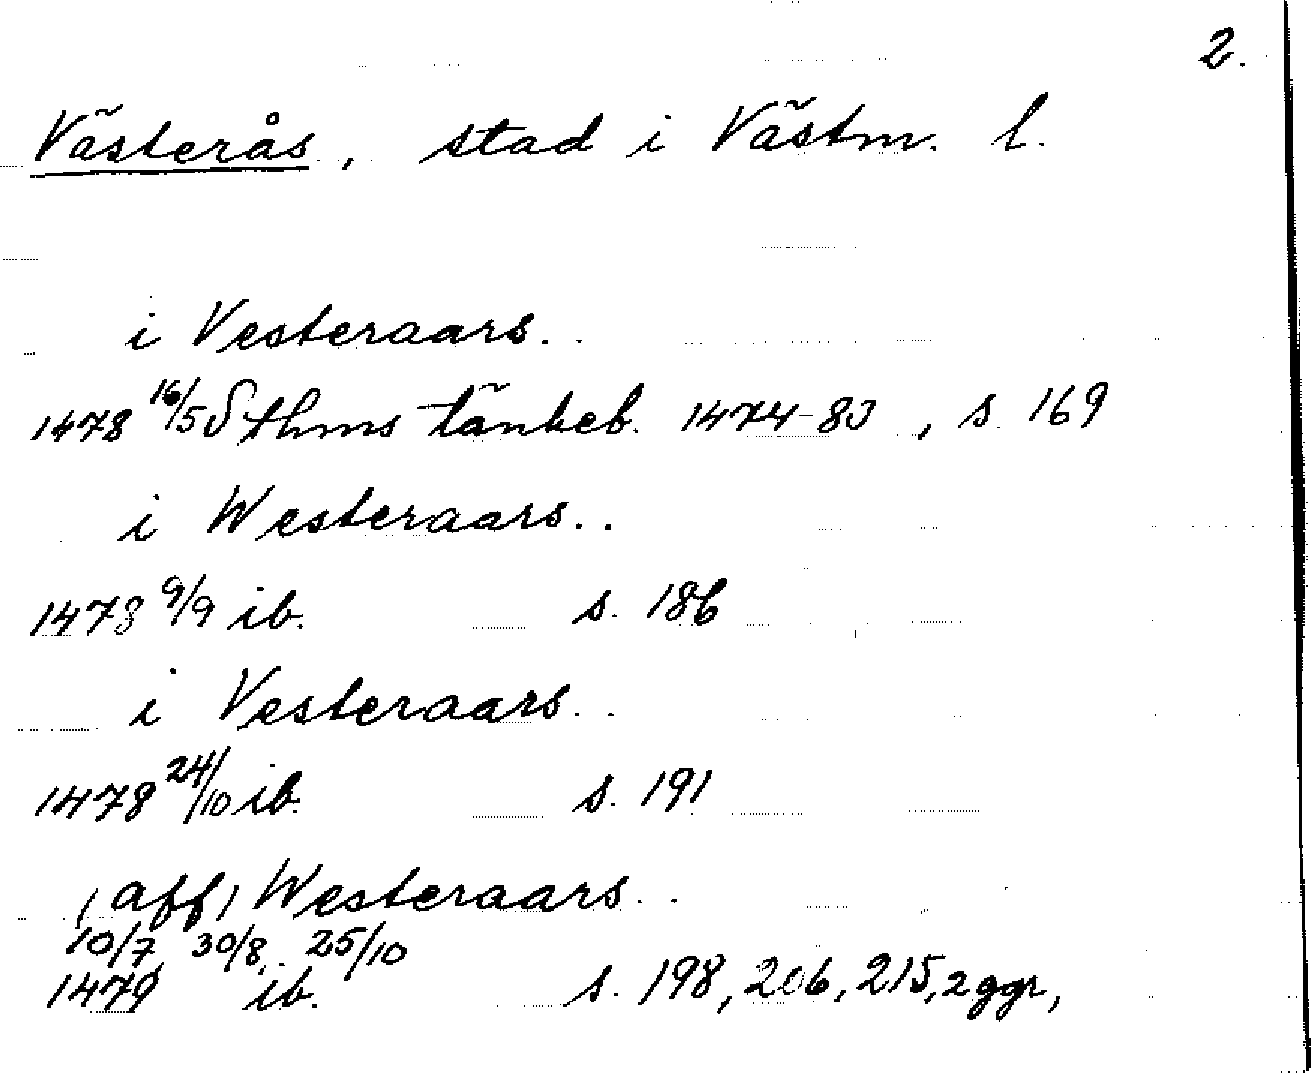 2.
Västerås, stad i Västm. l.
i Vesteraars..
1478 16/5 Sthms tänkeb. 1474-83, s. 169
i Westeraars..
1478 9/9 ib. s. 186
i Vesteraars..
1478 24/10 ib. s. 191
(aff) Westeraars..
10/7, 30/8, 25/10
1479 ib. s. 198, 206, 215, 2 ggr,